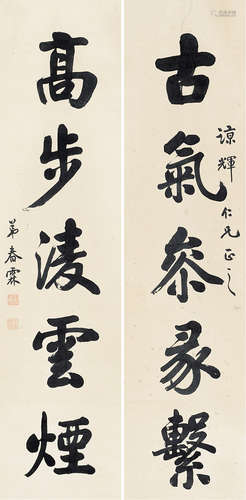 古氣参象繫
諒輝仁兄正之
高步凌雲煙
弟春霖